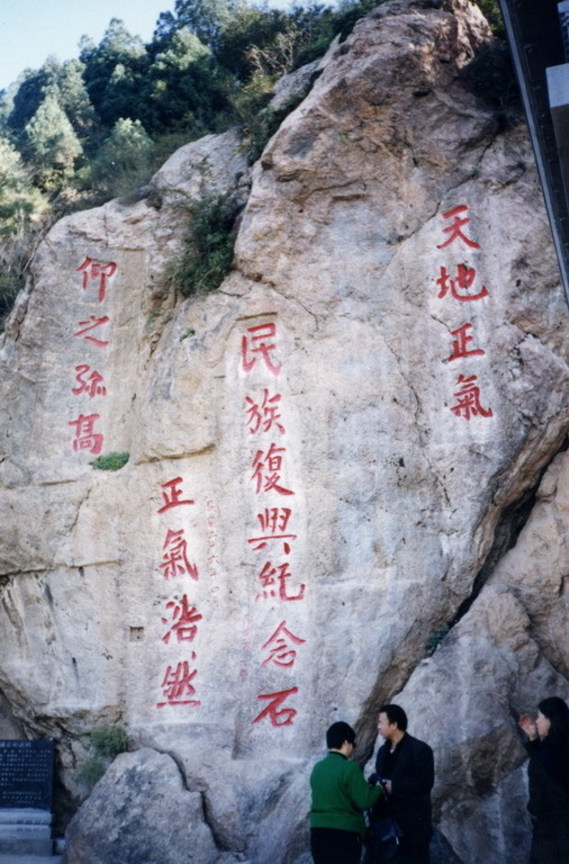 天地正氣
民族復興紀念石
正氣浩然
仰之弥高